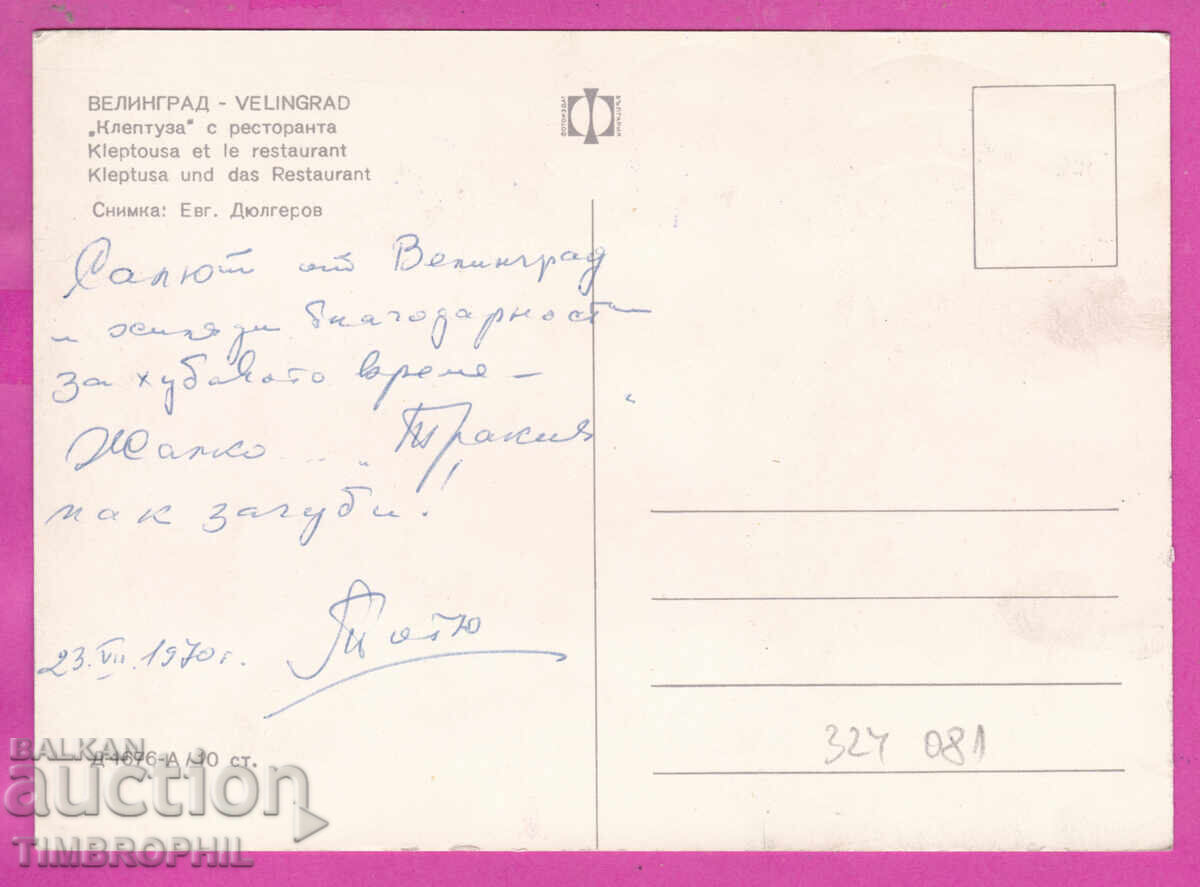 ВЕЛИНГРАД - VELINGRAD
„Клептуза“ с ресторанта
Kleptousa et le restaurant
Kleptusa und das Restaurant
Снимка: Евг. Дюлгеров
ФОТОИЗДАТ
БЪЛГАРИЯ
Салют от Велинград
и хиляди благодарности
за хубавото време –
Жалко... „Тракия“
пак загуби!
Тотю
23.VII.1970г.
Д-1676-А / 30 ст.
324 081
BALKAN
auction
TIMBROPHIL